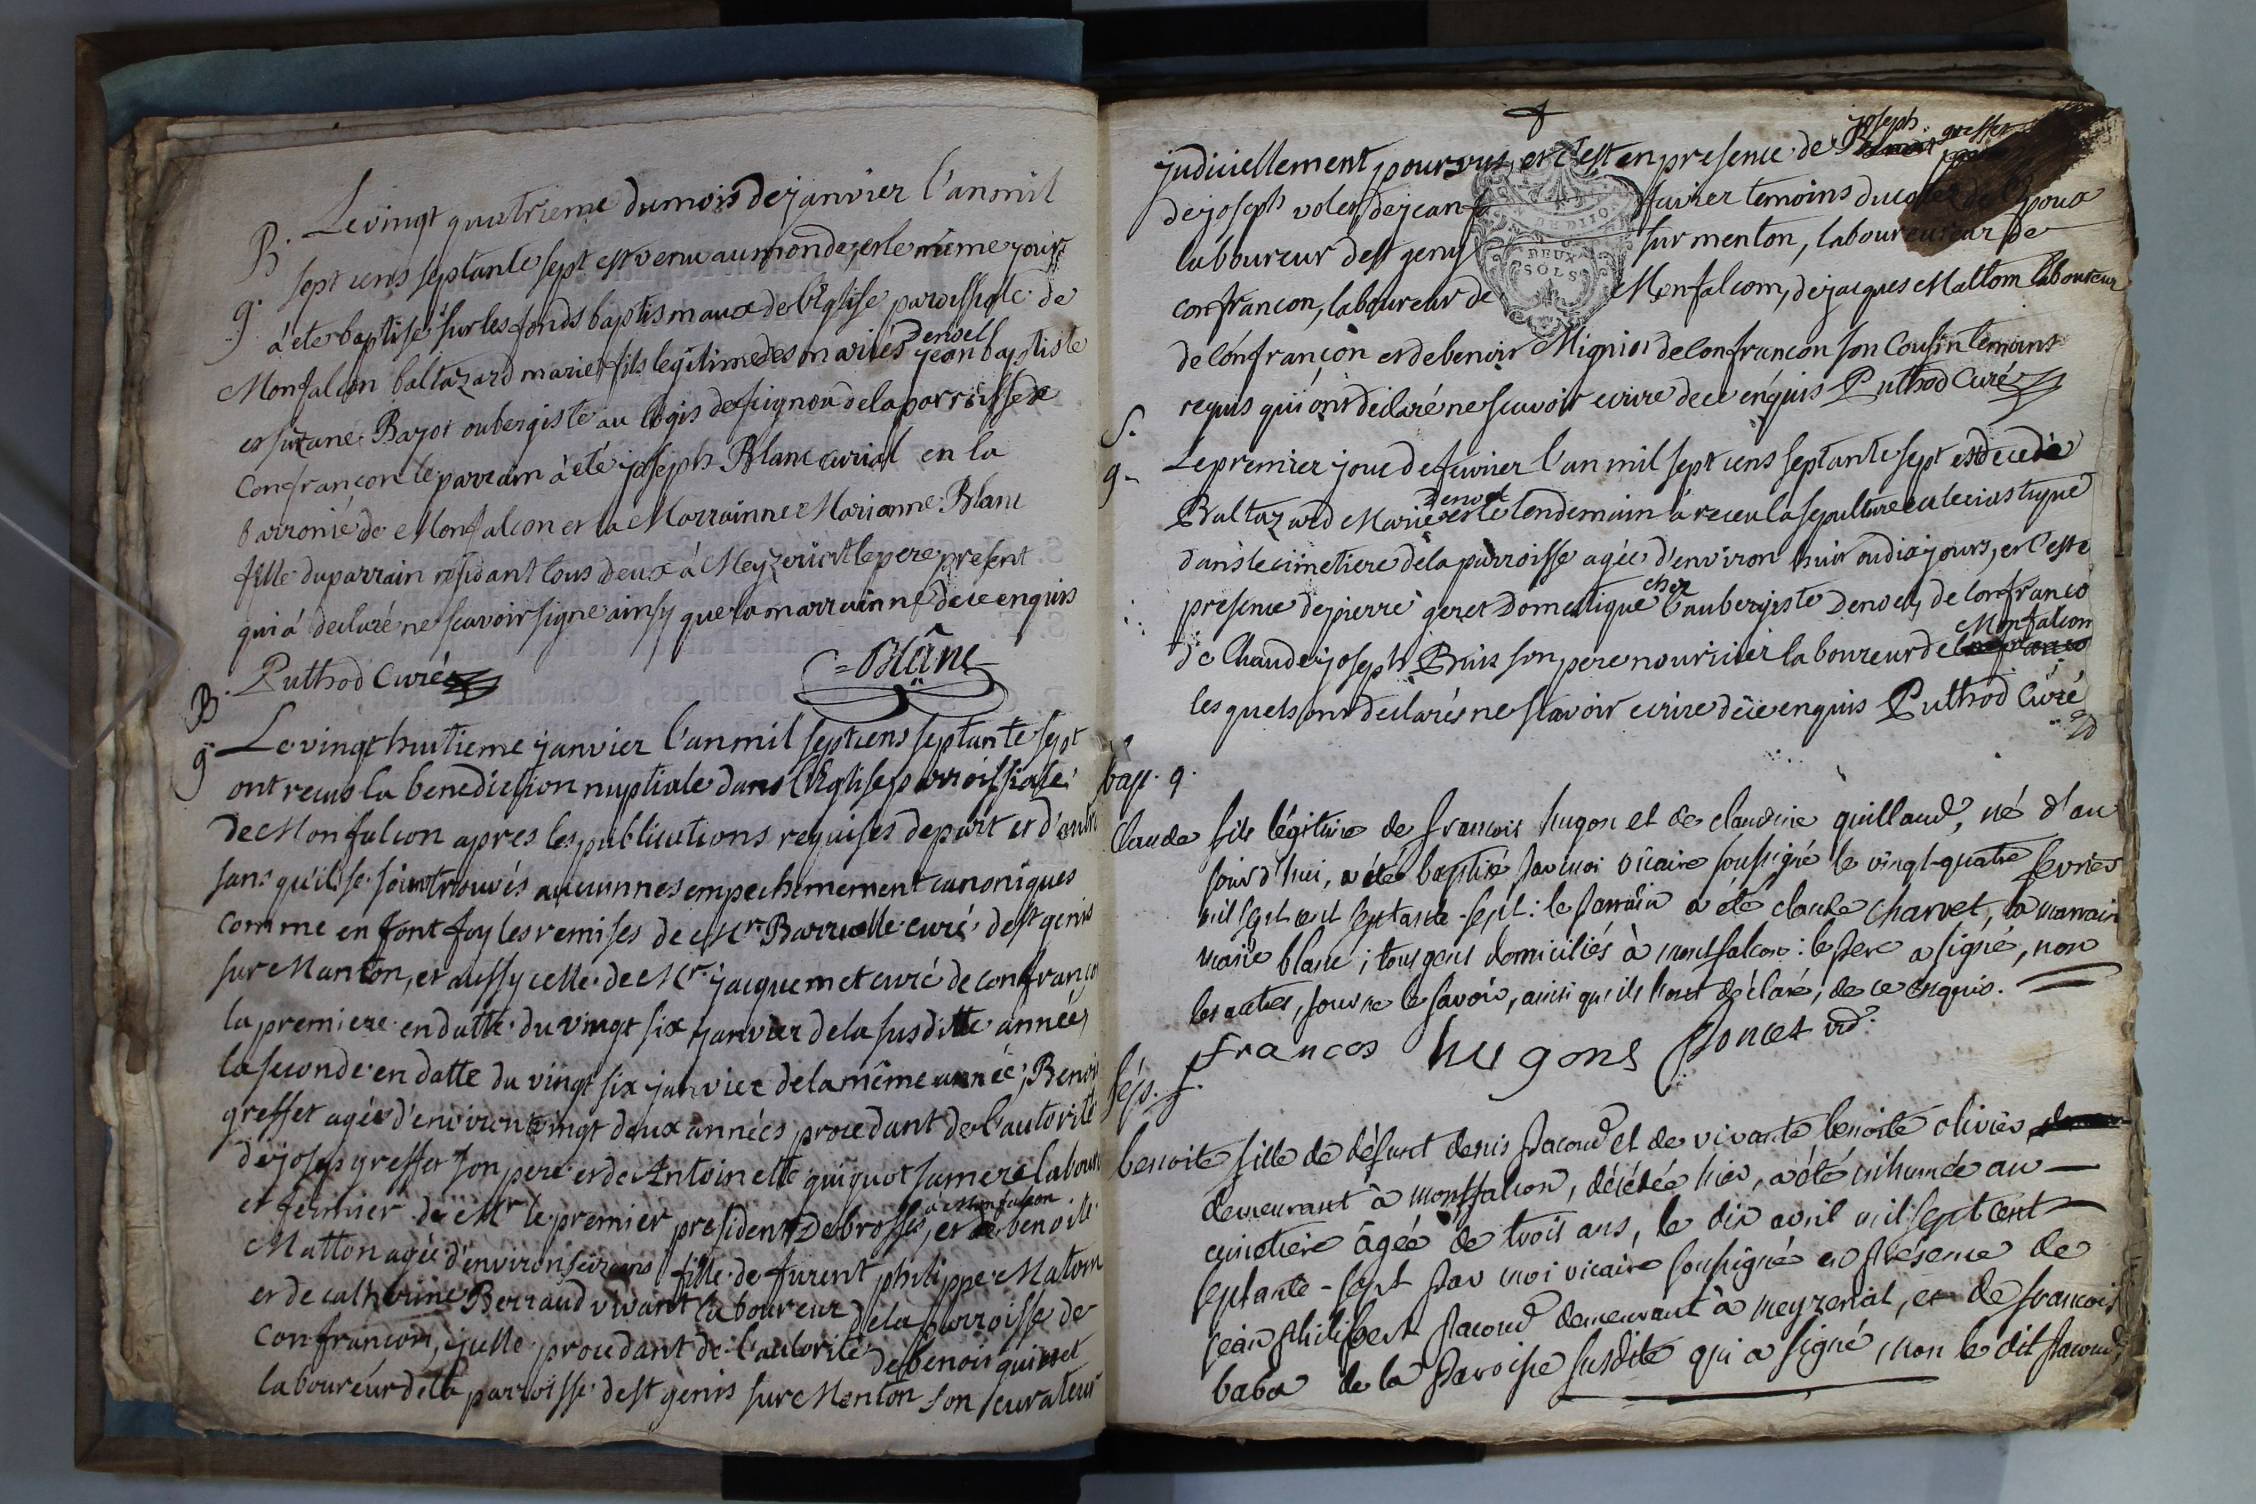 B. Le vingt quatrieme du mois de janvier l'an mil
g. sept cens septante sept est venu au monde, et le même jour
à été baptisé sur les fonds baptismaux de l'Eglise paroissiale de
Monfalcon baltazard marie fils legitime des mariés jean baptiste
denoel
et suzane Bayot aubergiste au logis de la parroisse de
Confrançon le parrain à été joseph Blanc curial en la
barronie de Monfalcon et la Marrainne Marianne Blanc
fille du parrain residant tous deux à Meyzeriat le pere present
qui à declaré ne scavoir signe ainsy que la marrainne de ce enquis
Puthod Curé Blanc
B.
g Le vingt huitieme janvier l'an mil sept cens septante sept
ont recus la benediction nuptiale dans l'Eglise parroissiale
de Monfalcon apres les publications requises de part et d'autre
sans qu'il se soint trouvés aucunnes empechemement canoniques
comme en font foy les remises de Mr. Barruelle curé de st genis
sur Manton, et aussy celle de Mr. jacquemet curé de confranço
la premiere en datte du vingt six janvier de la susditte année,
la seconde en datte du vingt six janvier de la même année; Benoi
greffet agée d'environ vingt deux années procedant de l'autorité
de joseph greffet son pere et de Antoinette guiguot sa mere labour
et fermier de Mr le premier president Debrosses, et de benoite
à Monfalcon
Matton agée d'environ seize ans fille de furent philippe Maton
et de catherine Berraud vivant laboureur de la parroisse de
Confrancon, icelle procedant de l'autorité de benoit
laboureur de la parroisse de st genis sur Menton son curateur
judiciellement pourvus, et c'est en presence de joseph greffet
de joseph voles de jean favier temoins du costez de l'Epoux
laboureur de st geny sur menton, laboureur de
confrancon, laboureur de Monfalcom, de jacques Mattom laboureur
de Confrançon et de benoit Migniot de confrancon son Cousin temoins
requis qui ont declaré ne scavoir ecrire de ce enquis Puthod Curé
S.
g. Le premier jour de fevrier l'an mil sept cens septante sept est decedé
Baltazard Marie denoel et le lendemain à receu la sepulture ecclesiastique
dans le cimetiere de la parroisse agée d'environ huit ou dix jours, et c'est e
presence de pierre geret Domestique chez l'aubergiste Denoel, de confranco
de Claude joseph Buis son pere nourricier laboureur de Monfalcon
les quels ont declarés ne scavoir ecrire de ce enquis Puthod Curé
bap. g.
Claude fils légitime de francois hugon et de claudine guillaud, né d'au
jourd'hui, a été baptisé par moi vicaire soussigné le vingt-quatre fevrier
mil sept cent septante-sept: le parrain a été claude charvet, la marrain
marie blanc; tous gens domiciliés à montfalcon: le pere a signé, non
les autres, pour ne le savoir, ainsi qu'ils l'ont déclaré, de ce enquis.
francos hugons poncet vic.
sép. g.
benoite fille de défunt denis pacoud et de vivante benoite olivier
demeurant à montfalcon, décédée hier, a été inhumée au
cimetière âgée de trois ans, le dix avril mil sept cent
septante-sept par moi vicaire soussigné en présence de
jean philibert pacoud demeurant à meyzeriat, et de francois
baba de la paroisse susdite qui a signé, non le dit pacoud,